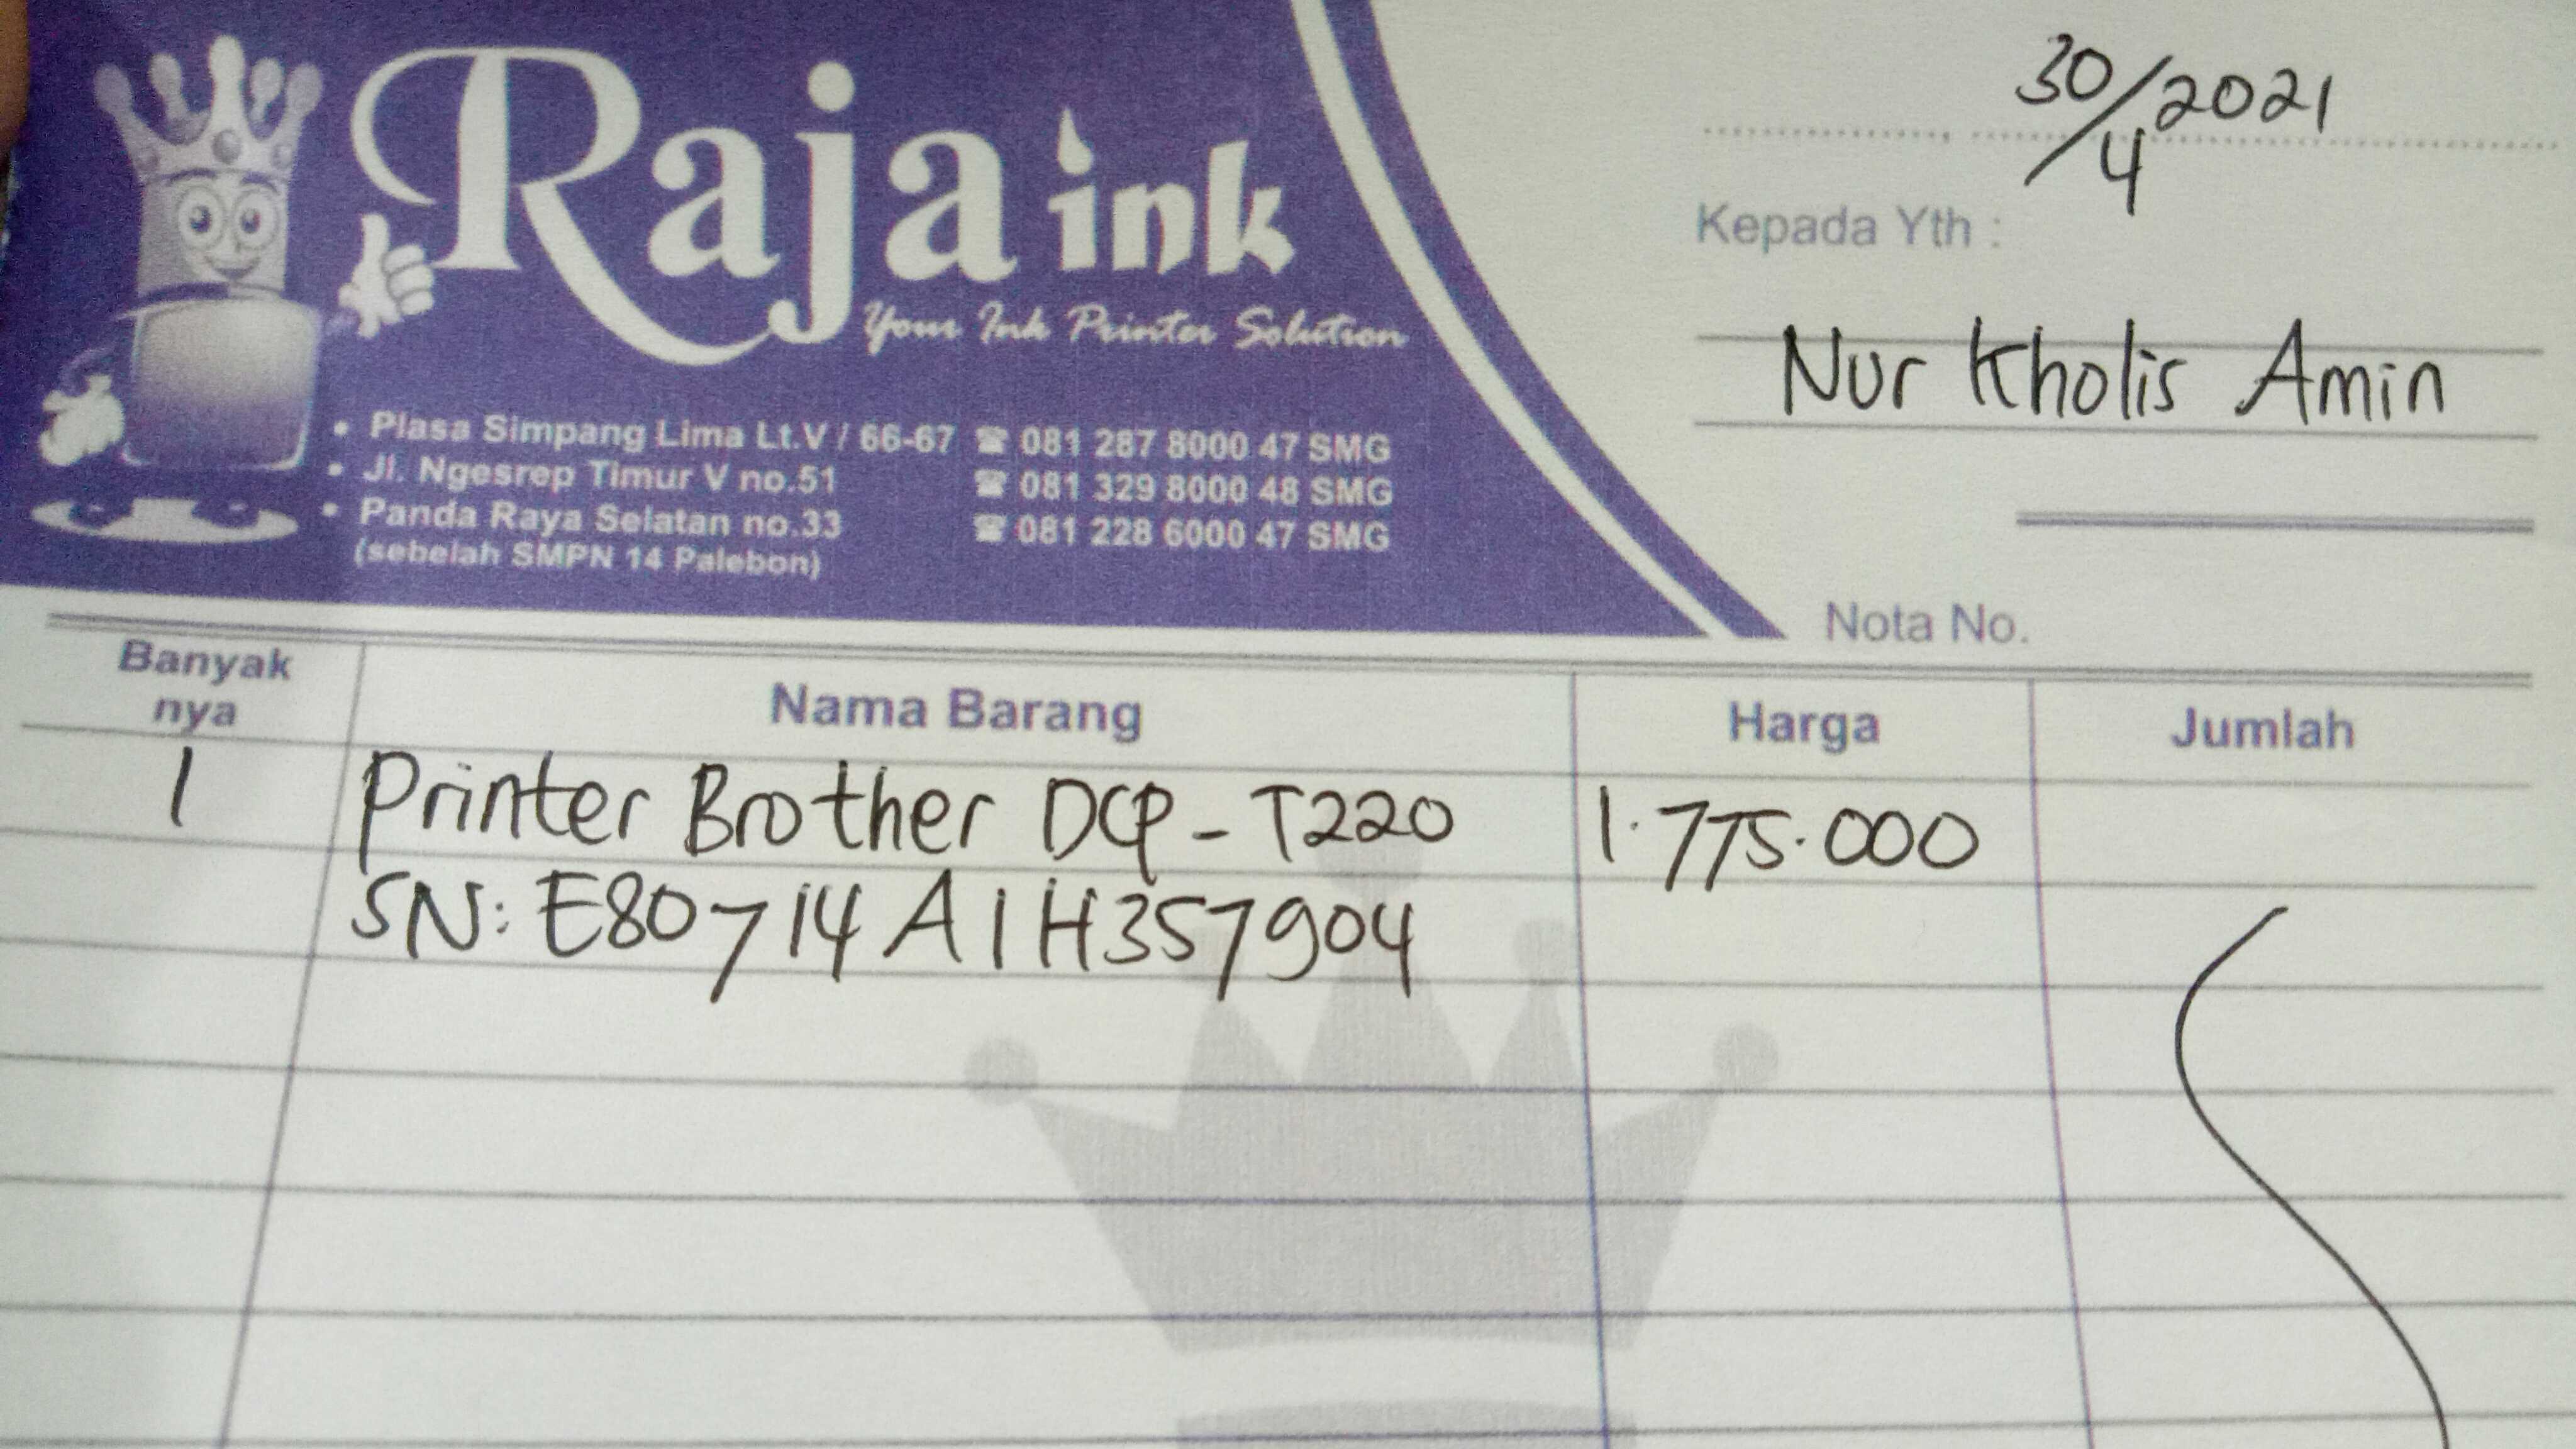 Raja ink
Your Ink Printer Solution
• Plasa Simpang Lima Lt.V / 66-67 ☎ 081 287 8000 47 SMG
• Jl. Ngesrep Timur V no.51 ☎ 081 329 8000 48 SMG
• Panda Raya Selatan no.33 ☎ 081 228 6000 47 SMG
(sebelah SMPN 14 Palebon)
30/4 2021
Kepada Yth :
Nur Kholis Amin
Nota No.
Banyak nya Nama Barang Harga Jumlah
1 Printer Brother DCP-T220 1.775.000
SN: E80714A1H357904